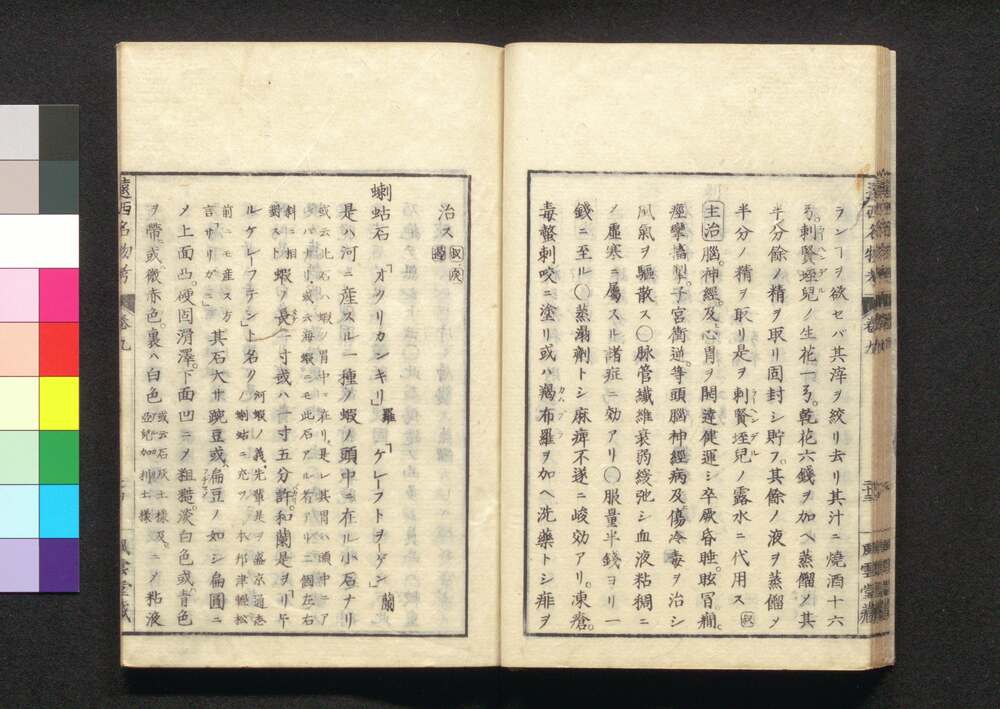 ヲンヿヲ欲セバ其滓ヲ絞リ去リ其汁ニ燒酒十六
刺賢垤兒ノ生花一乾花六錢ヲ加ヘ蒸餾ノ其
半分餘ノ精ヲ取リ固封シ貯フ其餘ノ液ヲ蒸餾メ
半分ノ精ヲ取リ是ヲ刺賢垤兒ノ露水ニ代用ス
主治 腦神經及心胃ヲ開達健運シ卒厥昏睡眩冒癇
痙攣搐掣子宮衝逆等頭腦神經病及傷冷毒ヲ治シ
風氣ヲ驅散ス○脉管纖維衰弱緩弛シ血液粘稠ニ
ノ虛寒ニ屬スル諸症ニ効アリ○服量半錢ヨリ一
錢ニ至ル○蒸溻劑トシ麻痺不遂ニ峻効アリ凍瘡
毒螫刺咬ニ塗リ或ハ羯布羅ヲ加ヘ洗藥トシ痱ヲ
治ス
蝲蛄石 「オクリカンキリ」羅 「ケレーフトヲヲゲン」蘭
是ハ河ニ産スル一種ノ蝦ノ頭中ニ在ル小石ナリ
或云此石ハ蝦ノ胃中ニ在リ是レ其胃ハ頭中ニア
ハナリ或云海蝦ニモ此石アル者アリ二個左右
斜ニ相對スト 蝦ノ長一寸或ハ一寸五分許和蘭是ヲリ
ルケレーフテント名ク 河蝦ノ義先輩是ヲ盛京通志
ノ蝲蛄ニ充ツ本邦津輕松
前ニモ産ス方言サリガニ 其石大サ豌豆或扁豆ノ如シ扁圓ニ
メ上面凸硬固滑澤下面凹ニノ粗糙淡白色或青色
ヲ帶或微赤色裏ハ白色 或云石灰土樣及ニノ粘液
亞兒加利土樣
遠西名物考 卷九 風雲堂藏